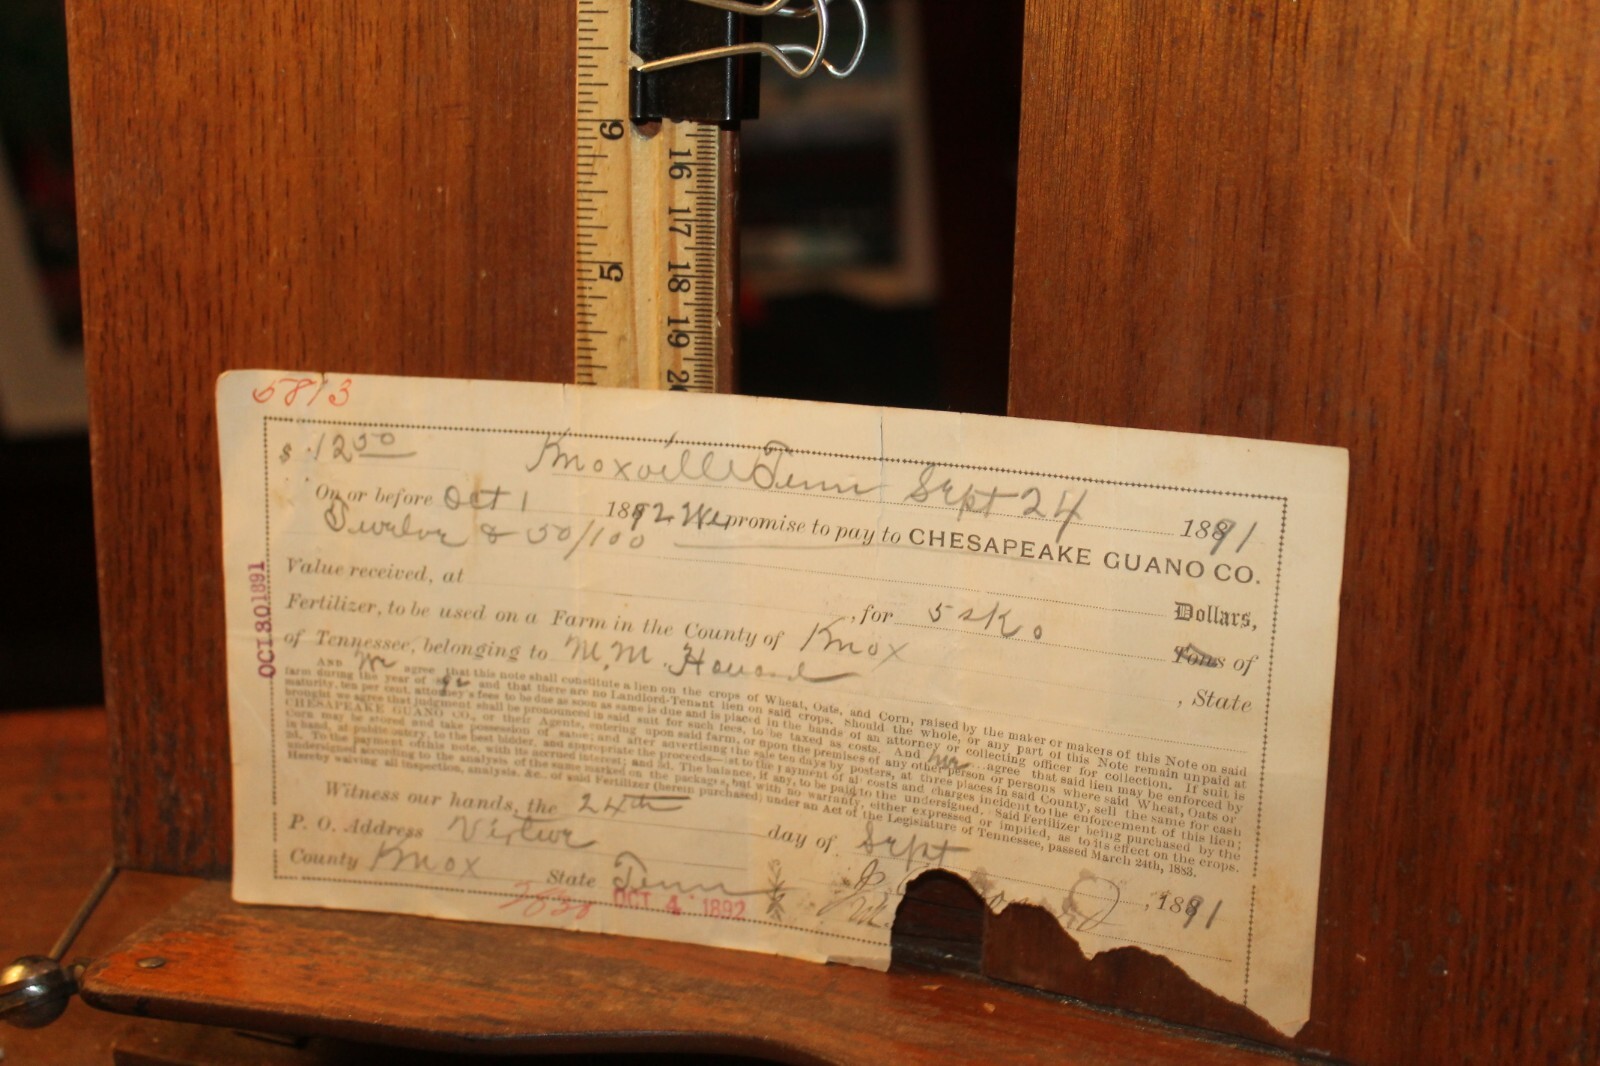 5813
$ 12 50
Knoxville Tenn Sept 24 1891
On or before Oct 1 1892 We promise to pay to CHESAPEAKE GUANO CO.
Twelve & 50/100 Dollars,
Value received, at , for 5 sks Tons of
Fertilizer, to be used on a Farm in the County of Knox , State
of Tennessee, belonging to M. M. Howard
AND We agree that this note shall constitute a lien on the crops of Wheat, Oats, and Corn, raised by the maker or makers of this Note on said
farm during the year of and that there are no Landlord-Tenant lien on said crops. Should the whole, or any part of this Note remain unpaid at
maturity, ten per cent. attorney's fees to be due as soon as same is due and is placed in the hands of an attorney or collecting officer for collection. If suit is
brought we agree that judgment shall be pronounced in said suit for such fees, to be taxed as costs. And We agree that said lien may be enforced by
CHESAPEAKE GUANO CO., or their Agents, entering upon said farm, or upon the premises of any other person or persons where said Wheat, Oats or
Corn may be stored and take possession of same; and after advertising the sale ten days by posters, at three places in said County, sell the same for cash
in hand, at public outcry, to the best bidder, and appropriate the proceeds—1st to the payment of all costs and charges incident to the enforcement of this lien;
2d. To the payment of this note, with its accrued interest; and 3d. The balance, if any, to be paid to the undersigned. Said Fertilizer being purchased by the
undersigned according to the analysis of the same marked on the package, but with no warranty, either expressed or implied, as to its effect on the crops.
Hereby waiving all inspection, analysis, &c., of said Fertilizer (herein purchased) under an Act of the Legislature of Tennessee, passed March 24th, 1883.
Witness our hands, the 24th day of Sept , 1891
P. O. Address Virtue
County Knox State Tenn
OCT 30 1891
OCT 4 1892
6
5
16 17 18 19